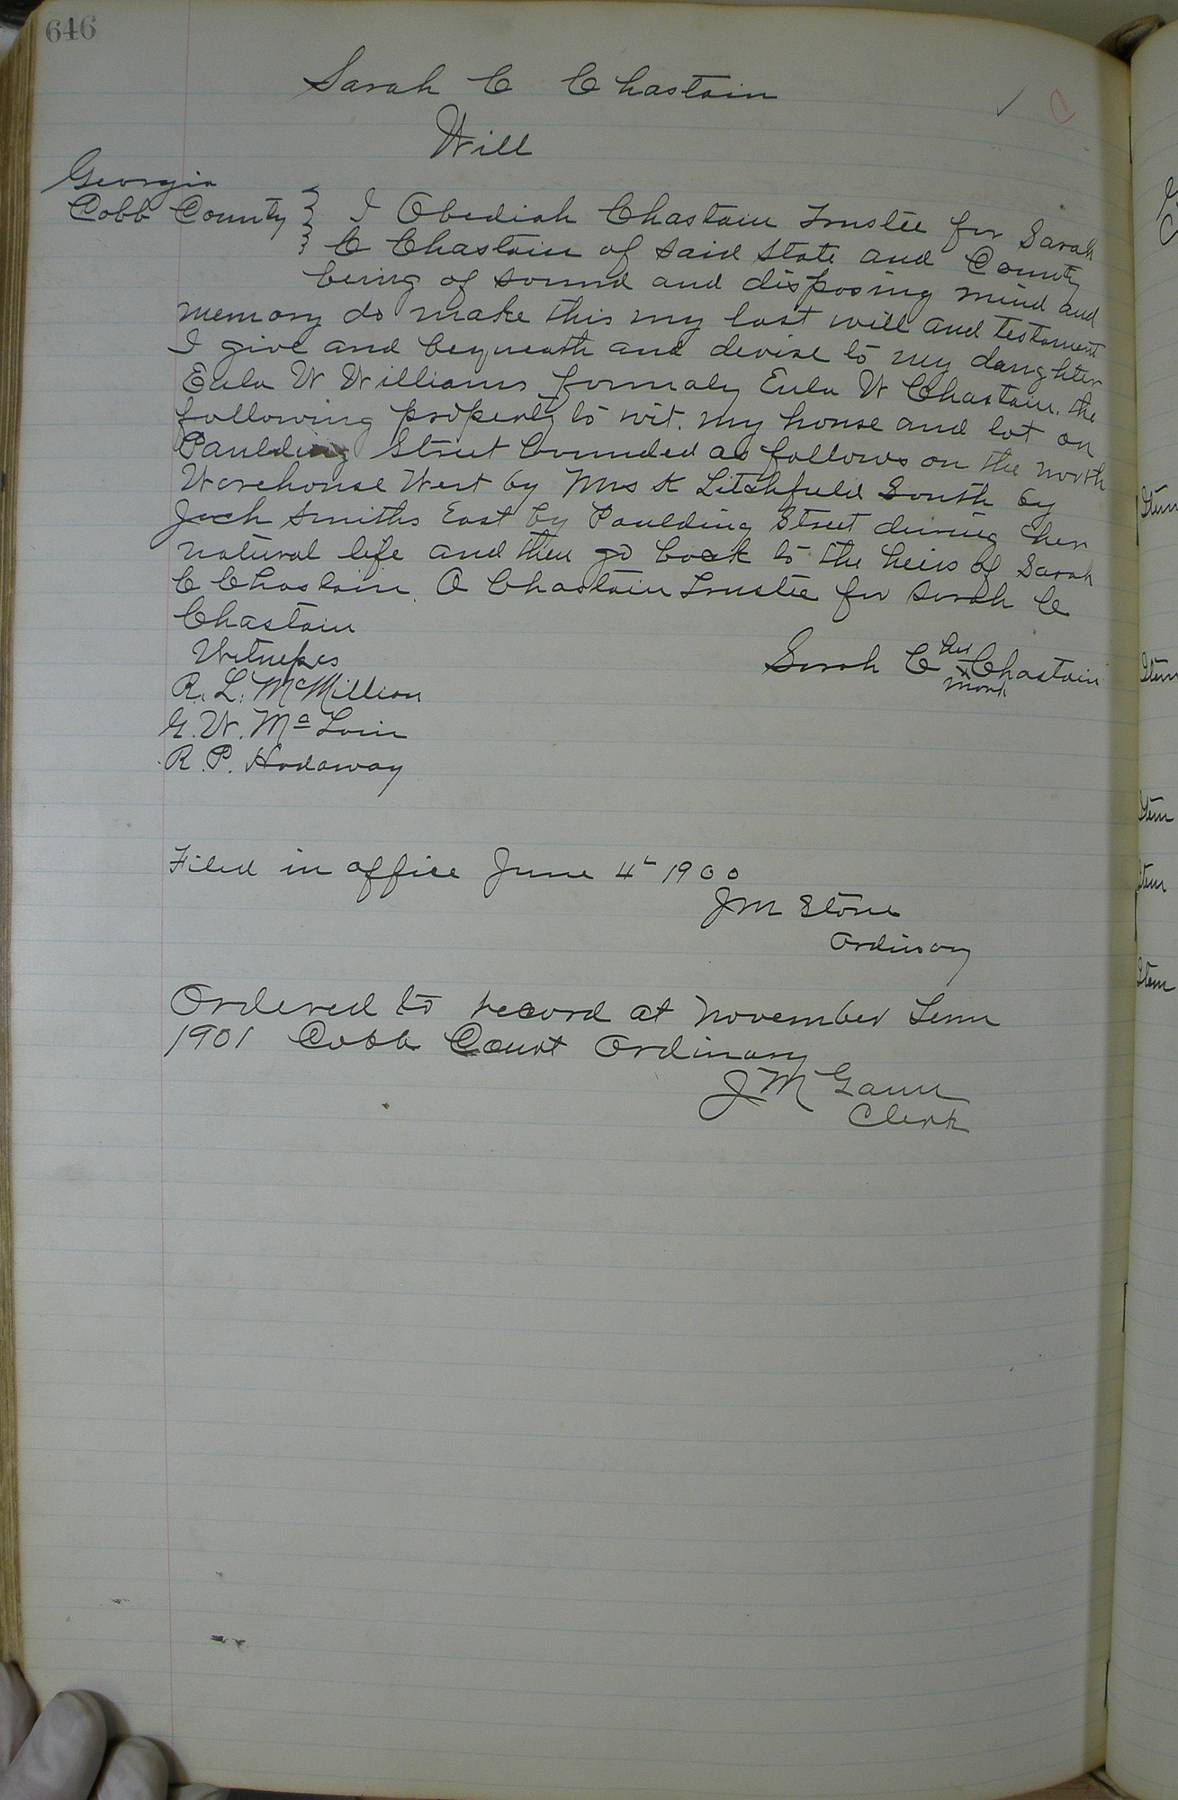 646
Sarah C Chastain
Will
Georgia
Cobb County } I Obediah Chastain Trustee for Sarah
C Chastain of said State and County
being of sound and disposing mind and
memory do make this my last will and testament
I give and bequeath and devise to my daughter
Eula W Williams formaly Eula W Chastain. the
following property to wit. my house and lot on
Paulding Street bounded as follows on the north
Warehouse West by Mrs K Litchfield South by
Jack Smiths East by Paulding Street during her
natural life and then go back to the heirs of Sarah
C Chastain. O Chastain Trustee for Sarah C
Chastain
Sarah C her Chastain
x
mark
Witnesses
R. L. McMillion
G. W. McLain
R. P. Hadaway
Filed in office June 4th 1900
J M Stone
Ordinary
Ordered to record at November Term
1901 Cobb Court Ordinary
J M Gann
Clerk
Item
Item
Item
Item
Item